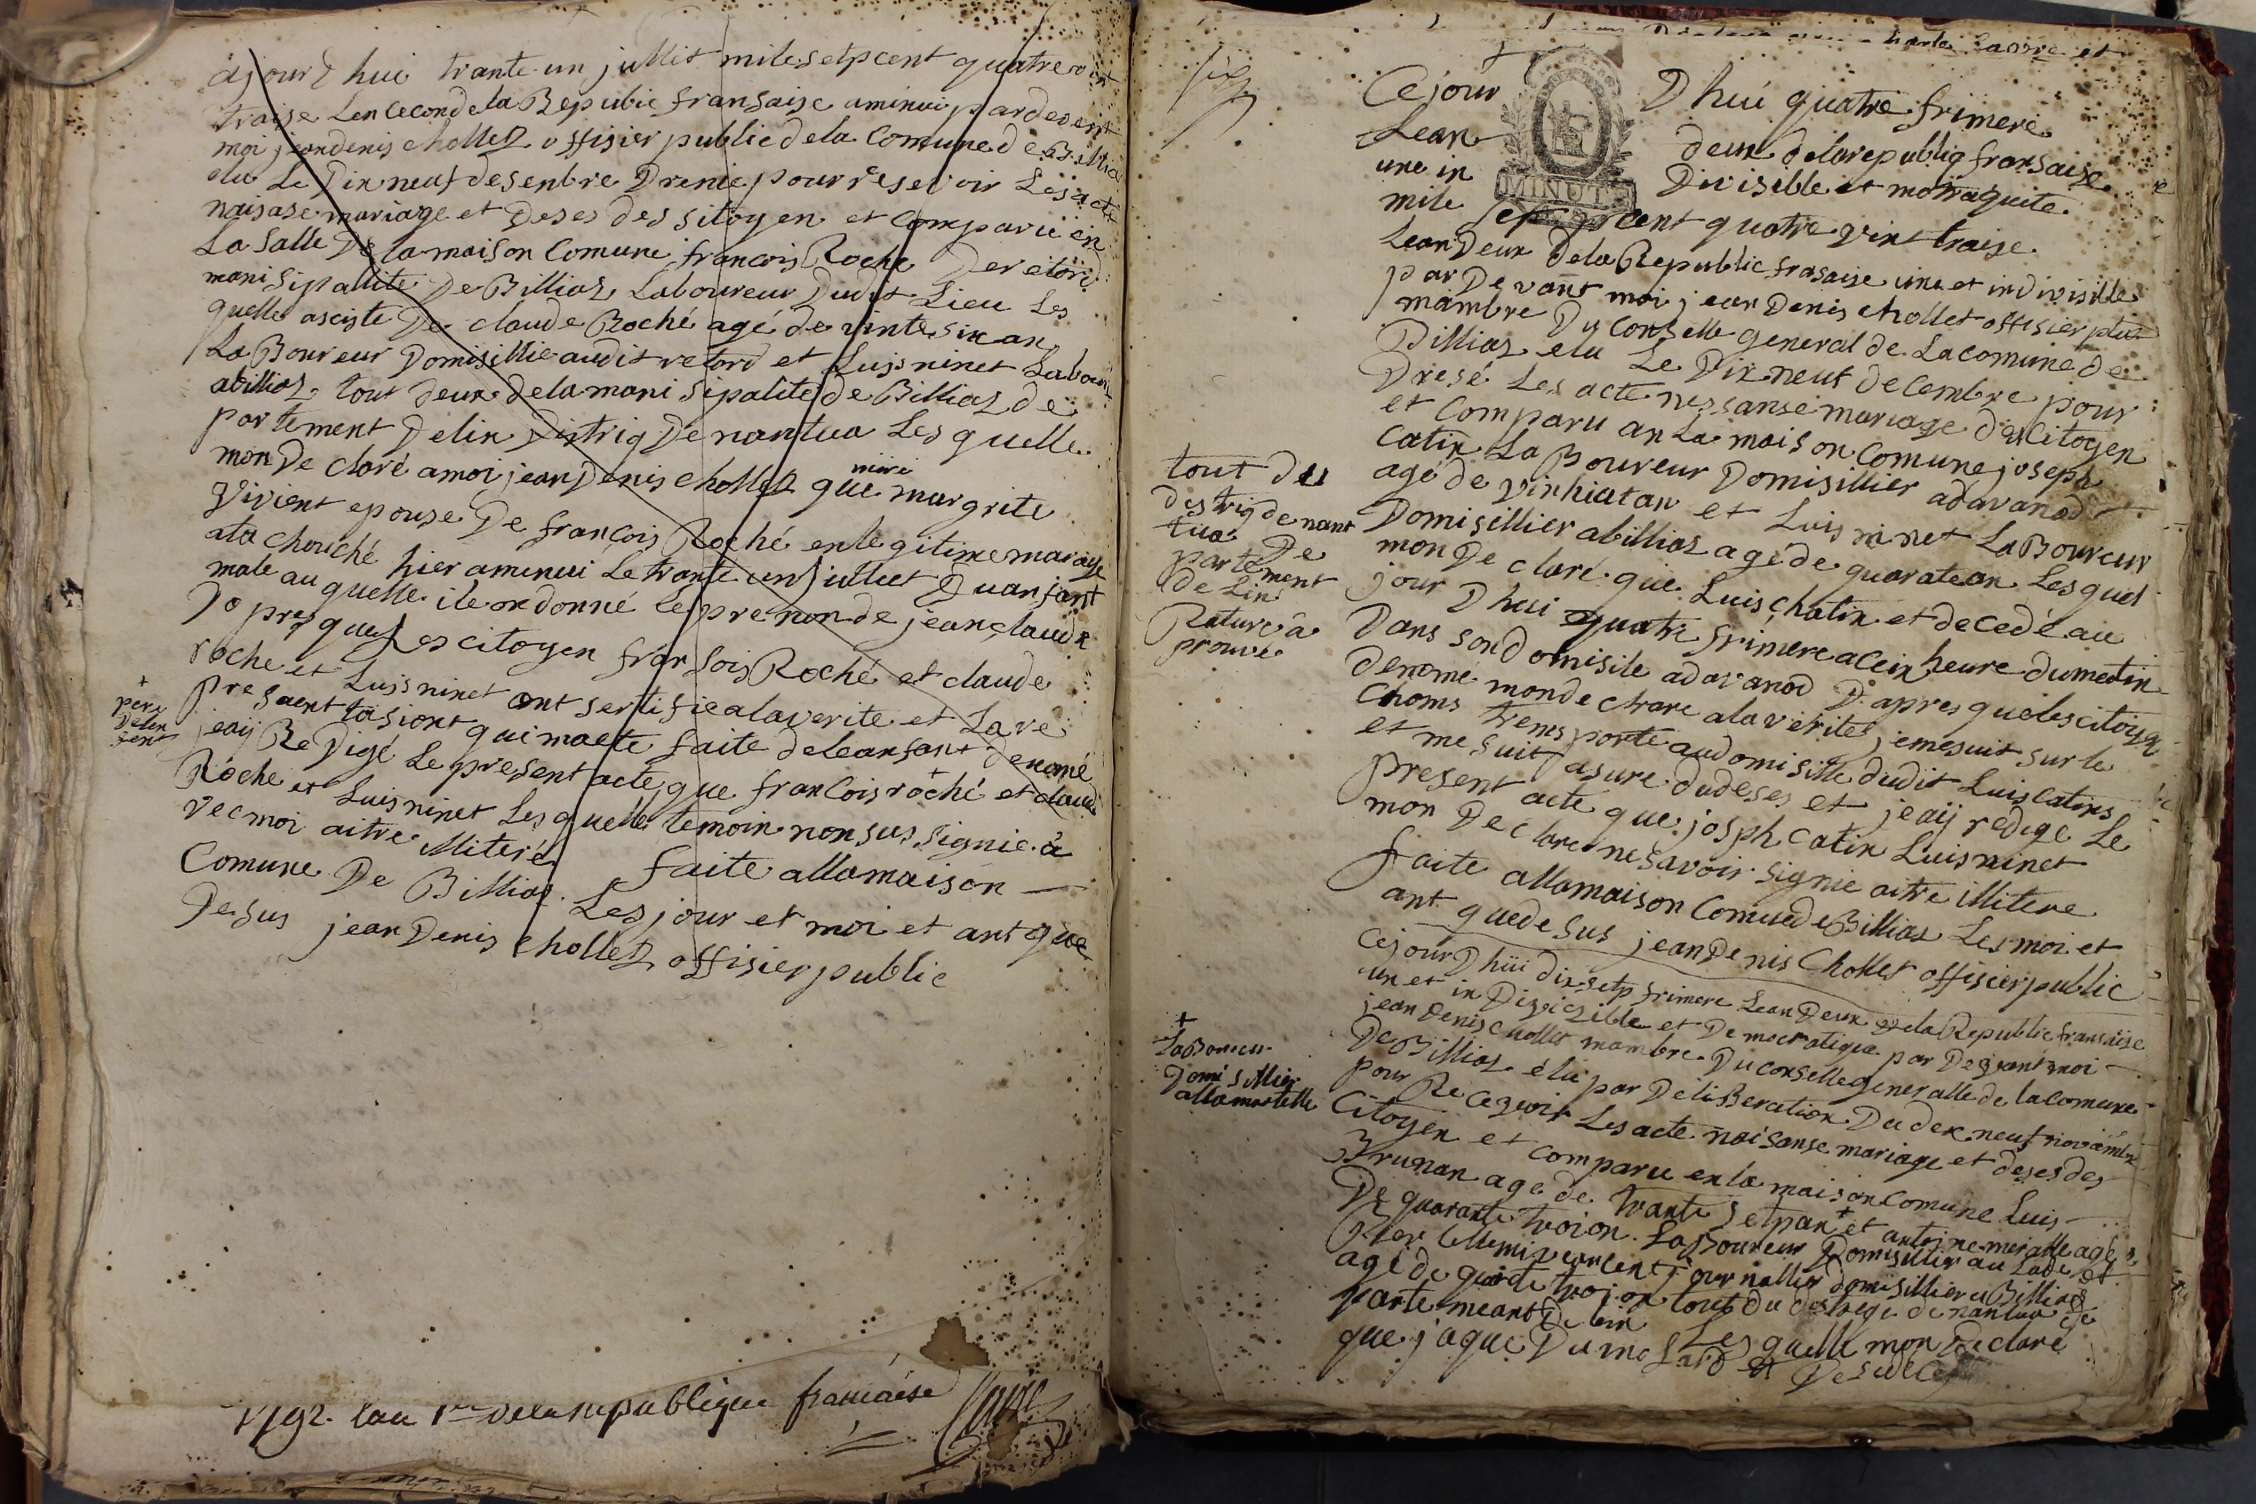 ajour d hui trante un jullit mile setp cent quatre vint
traise Len Cecond de la Republic fransaise aminui par devent
moi jeandenis chollet offisier public de la Comune de Billia
elu Le Dix neuf desenbre Drenie pour resevoir Les acte
naisase mariage et Deses des sitoyen et Comparu en
La Salle De la maison Comune francois Roche De retord
manisipallite De Billiaz Laboureur Dudit Lieu Les
quelles asciste De claude Roché agé de vinte six an
La Boureur Domisillie audit retord et Luis ninet Labour
abilliaz tout deux de la manisipalite de Billiaz de
partement De lin Distriq De nantua Les quelle
mon De claré amoi jean Denis chollet que margrite
miri
Vivient epouse De francois Roché en legitime mariage
ata chouché hier aminui Le trante un juillet D uan fant
male au quelle ile on donné le prenon de jean claude
Do pres que Les citoyen fransois Roché et claude
roche et Luis ninet ont sertifie a la verite et La re
pre saent tasiont qui ma ete faite de lean fant denomé
+
pere
De len
fent
jeaij Redigé Le present acte que francois roché et claude
Roche et Luis ninet Les quelle temoin non sus signie a
vec moi aitre illiteré
faite allamaison
Comune De Billiaz Les jour et moi et ant que
De sus jean Denis chollet offisier public
1792. lan 1er de la republique francaise
Ce jour D hui quatre frimere
Lean deux de la republiq fransaise
une in Divisible et
MINUTE
mile setp cent quatre vint traise
Lean Deux de la Republic frasaise une et indivisible
par De vant moi jean Denis chollet offisier
mambre Du Conselle general de La comune de
Billiaz elu Le Dix neuf decembre pour
Dresé Les acte nessanse mariage des Citoyen
et Comparu an La maison Comune joseph
Catin La Boureur Domisillier adavanod
agé de et Luis ninet La Boureur
tout du
destriq de nant
tua De
partement
de Lin
Rature a
prouve
Domisillier abilliaz agé de quarate an Les quel
mon De claré que Luis chatin et decedé au
jour D hui quatre frimere a cein heure du matin
Dans son domisile adavanod D apres que les citoyen
denomé mon de clrare a la verite je me suit sur le
chams trensporte au domisille dudit Luis catins
et me suit asure du deses et jeaij redige Le
present acte que josph catin Luis ninet
mon De clare ne savoir signie aitre illitere
faite allamaison Comue de Billiaz Les moi et
ant que de sus jean De nis Chollet offisier public
Ce jour D hui dix setp frimere Lean Deux de la Republic fransaise
un et in Divizible et Democratique par Devant moi
jean Denis chollet mambre Du conselle generalle de la comune
De Billiaz élu par Delisseration Du dex neuf noviambre
pour Recevoir Les acte naisanse mariage et deses des
Citoyen et Comparu en la maison Comune Luis
+
La Boureur
Domisillier
allamartelle
Brunan age de trante setp an + et antoine agé
De quarante troi on La Boureur Domisillier au
journallier domisillier a Billiaz
agé de troi on tout du de nantua de
parte meant De lein Les quelle mon De claré
que jaque Du